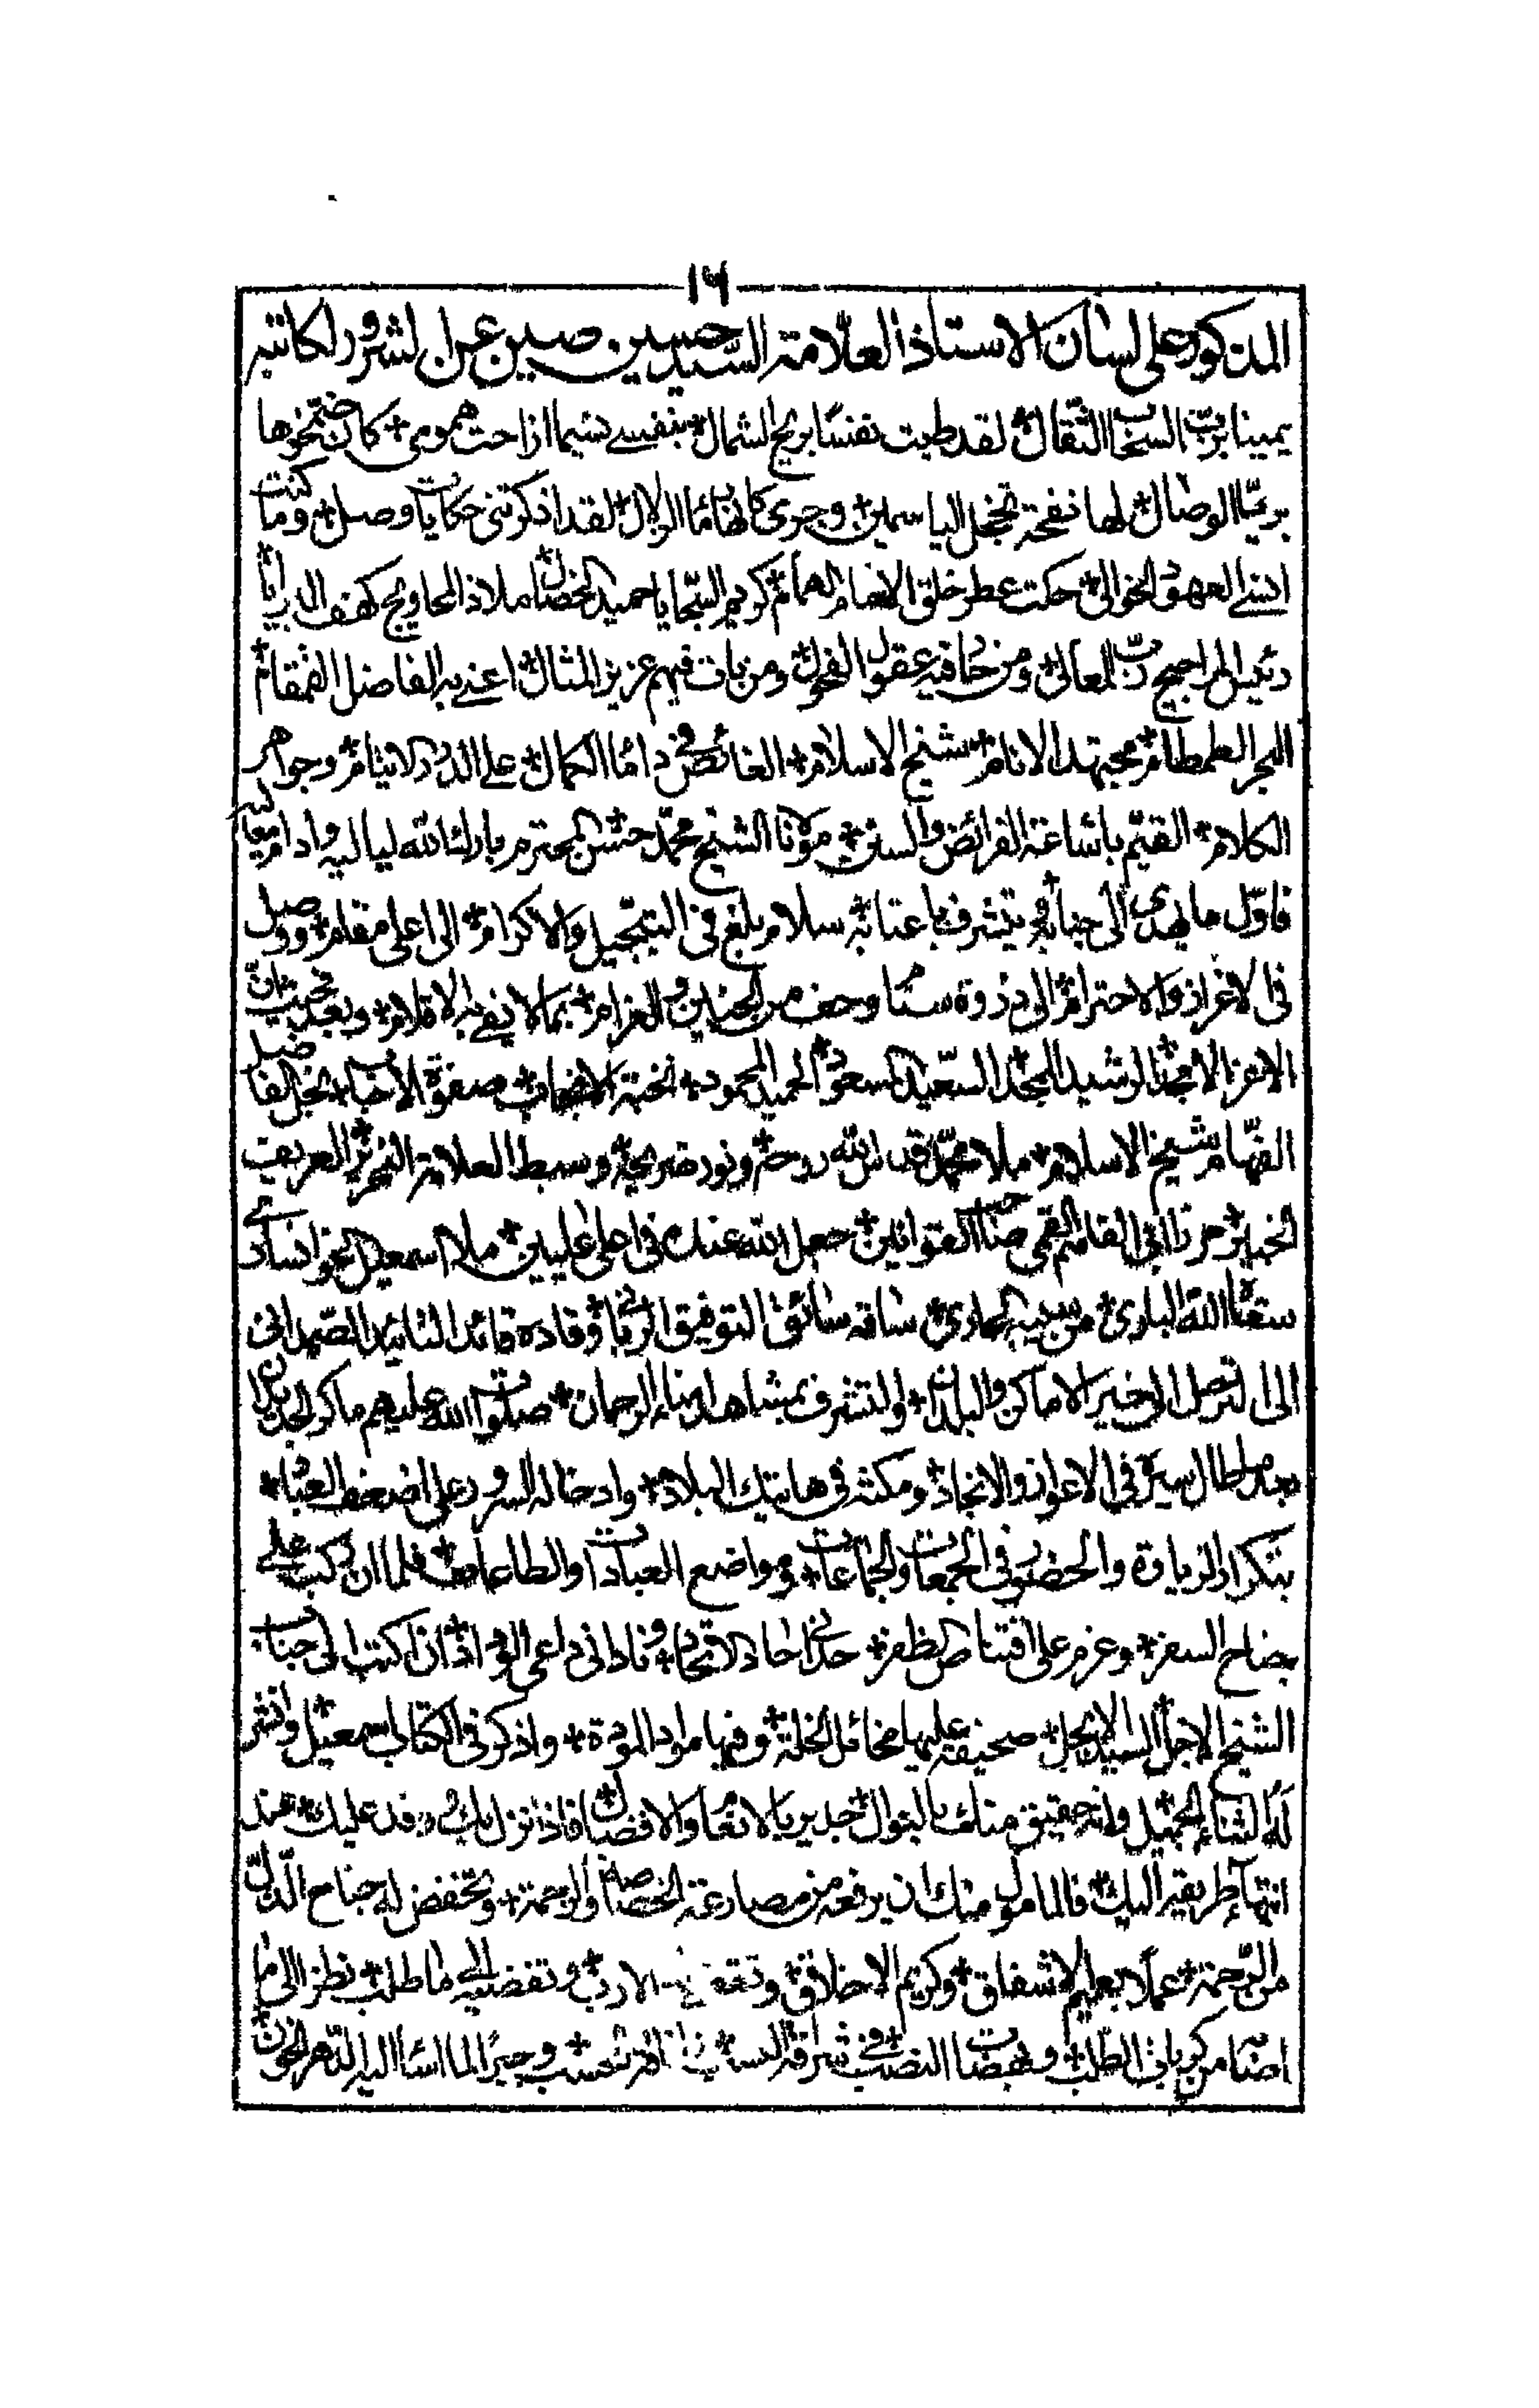 ١٦
المذكور على لسان الاستاذ العلامة السيد حسين صين عن الشرور لكاتبه
يمينا برب السحاب الثقال لقد طبت نفسا بريح الشمال بنفسي نسيما ازاحت همومي كان ضمخوها
بريا الوصال لها نفحة تخجل الياسمين وجرى كانهار ماء الزلال لقد اذكرتني حكايات وصل وما كنت
انسى العهود الخوالي حكت عطر خلق الامام الهمام كريم السجايا حميد الخصال ملاذ المحاويج كهف البرايا
رئيس المراجيح رب المعالي ومن حار فيه عقول الفحول ومن بات فيهم عزيز المثال اعني به الفاضل القمقام
البحر الطمطام مجتهد الانام شيخ الاسلام الغائص في داماء الكمال على الدرر لا يتام وجواهر
الكلام القيم باشاعة الفرائض والسنن مولانا الشيخ محمد حسن المحترم بارك الله لياليه وادام معاليه
فاول ما يهدى الى جنابه ويتشرف باعتابه سلام بلغ في التبجيل والاكرام الى اعلى مقام ووصل
في الاعزاز والاحترام الى ذروة سنام وحف من الحنين والغرام بما لا يفي به الاقلام وبعد فحيث ان
الاعز الامجد الرشيد المجد السعيد المسعود الحميد المحمود نخبة الانجاب صفوة الاحباب نجل الفاضل
الفهام شيخ الاسلام ملا محمد قدس الله روحه ونور ضريحه وسبط العلامة النحرير العريف
الخبير مرزا ابي القاسم القمي صاحب القوانين جعل الله عنده في اعلى عليين ملا اسمعيل الخوانساري
سقاه الله الباري من سيبه الجاري ساقه سائق التوفيق الرباني وقاده قائد التائيد الصمداني
الى ان ترحل الى خير الاماكن والبلدان والتشرف بمشاهد امناء الرحمان صلوات الله عليهم ما كر الجديدان
بعد ما طال سيره في الاغوار والانجاد ومكثه في هاتيك البلاد وادخاله السرور على اضعف العباد
بتكرار الزيارة والحضور في الجمعات والجماعات ومواضع العبادات والطاعات فلما ان ركب على
جناح السفر وعزم على اقتناص الظفر حداني حادي الاتحاد وناداني داعي الوداد ان اكتب الى جناب
الشيخ الاجل السيد الابجل صحيفة عليها مخائل الخلة وفيها موارد المودة واذكر في الكتاب اسمعيل وانشر
له الثناء الجميل وانه حقيق منك بالنوال جدير بالانعام والافضال فاذا نزل بك وفد عليك عند
انتهاء طريقه اليك فالمامول منك ان يرفعه من مصارعة الخصاصة والرحمة وتخفض له جناح الذل
من الرحمة عملا بعميم الاشفاق وكريم الاخلاق الارب وتفضيه الى ما طلب نظرا الى ما
اصابه من كربات الطلب ونهضات النصب في شرافة النسب وجبرا لما اساء اليه الدهر الخوون